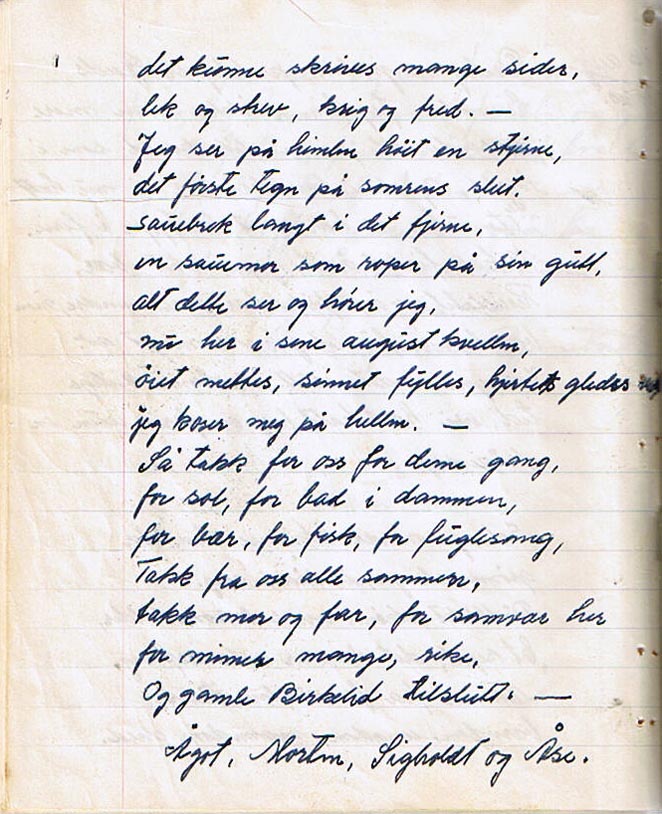 det kunne skrives mange sider,
lek og strev, krig og fred. —
Jeg ser på himlen höit en stjerne,
det første tegn på somrens slut.
sauebrek langt i det fjerne,
en sauemor som roper på sin gutt,
alt dette ser og hører jeg,
nu her i sene august kvellen,
öiet mettes, sinnet fylles, hjertet gledes
jeg koser meg på hellen. —
Så takk for oss for denne gang,
for sol, for bad i dammen,
for bær, for fisk, for fuglesang,
Takk fra oss alle sammen,
takk mor og far, for samvær her
for minner mange, rike,
Og gamle Birkelid tilslutt. —
Ågot, Morten, Sigholdt og Åse.